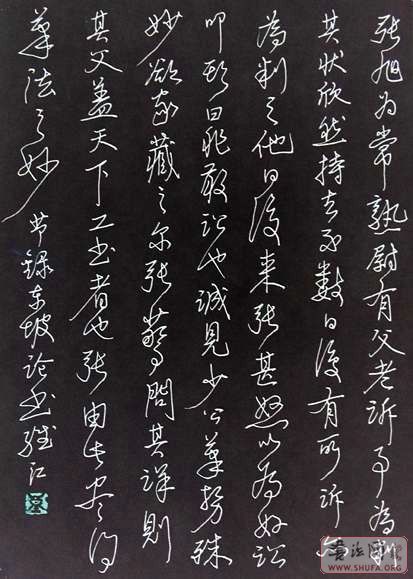 張旭為常熟尉有父老訴事為判
其狀欣然持去不數日復有所訴亦
為判之他日復來張甚怒以為好訟
叩頭曰非敢訟也誠見少公筆勢殊
妙欲家藏之爾張驚問其詳則
其父蓋天下工書者也張由此盡得
筆法之妙 节録東坡論書 江
WWW.SHUFA.ORG